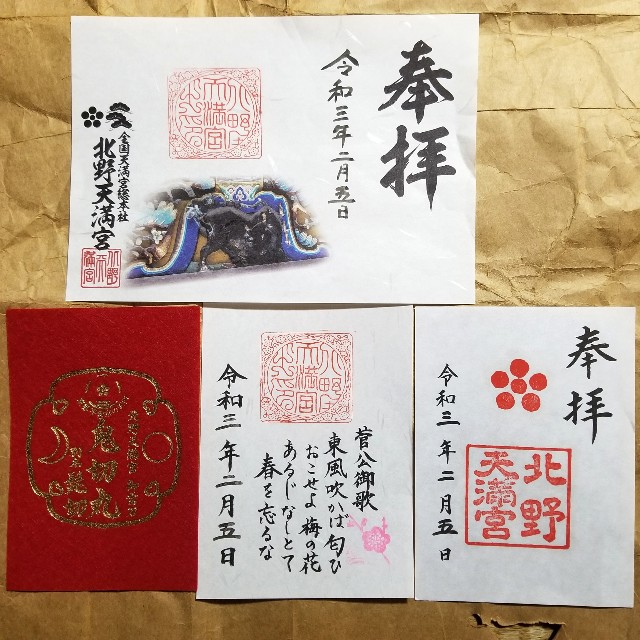 奉拝
令和三年二月五日
全国天満宮総本社
北野天満宮
鬼切丸
菅公御歌
東風吹かば匂ひ
おこせよ梅の花
あるじなしとて
春を忘るな
令和三年二月五日
奉拝
北野
天満宮
令和三年二月五日